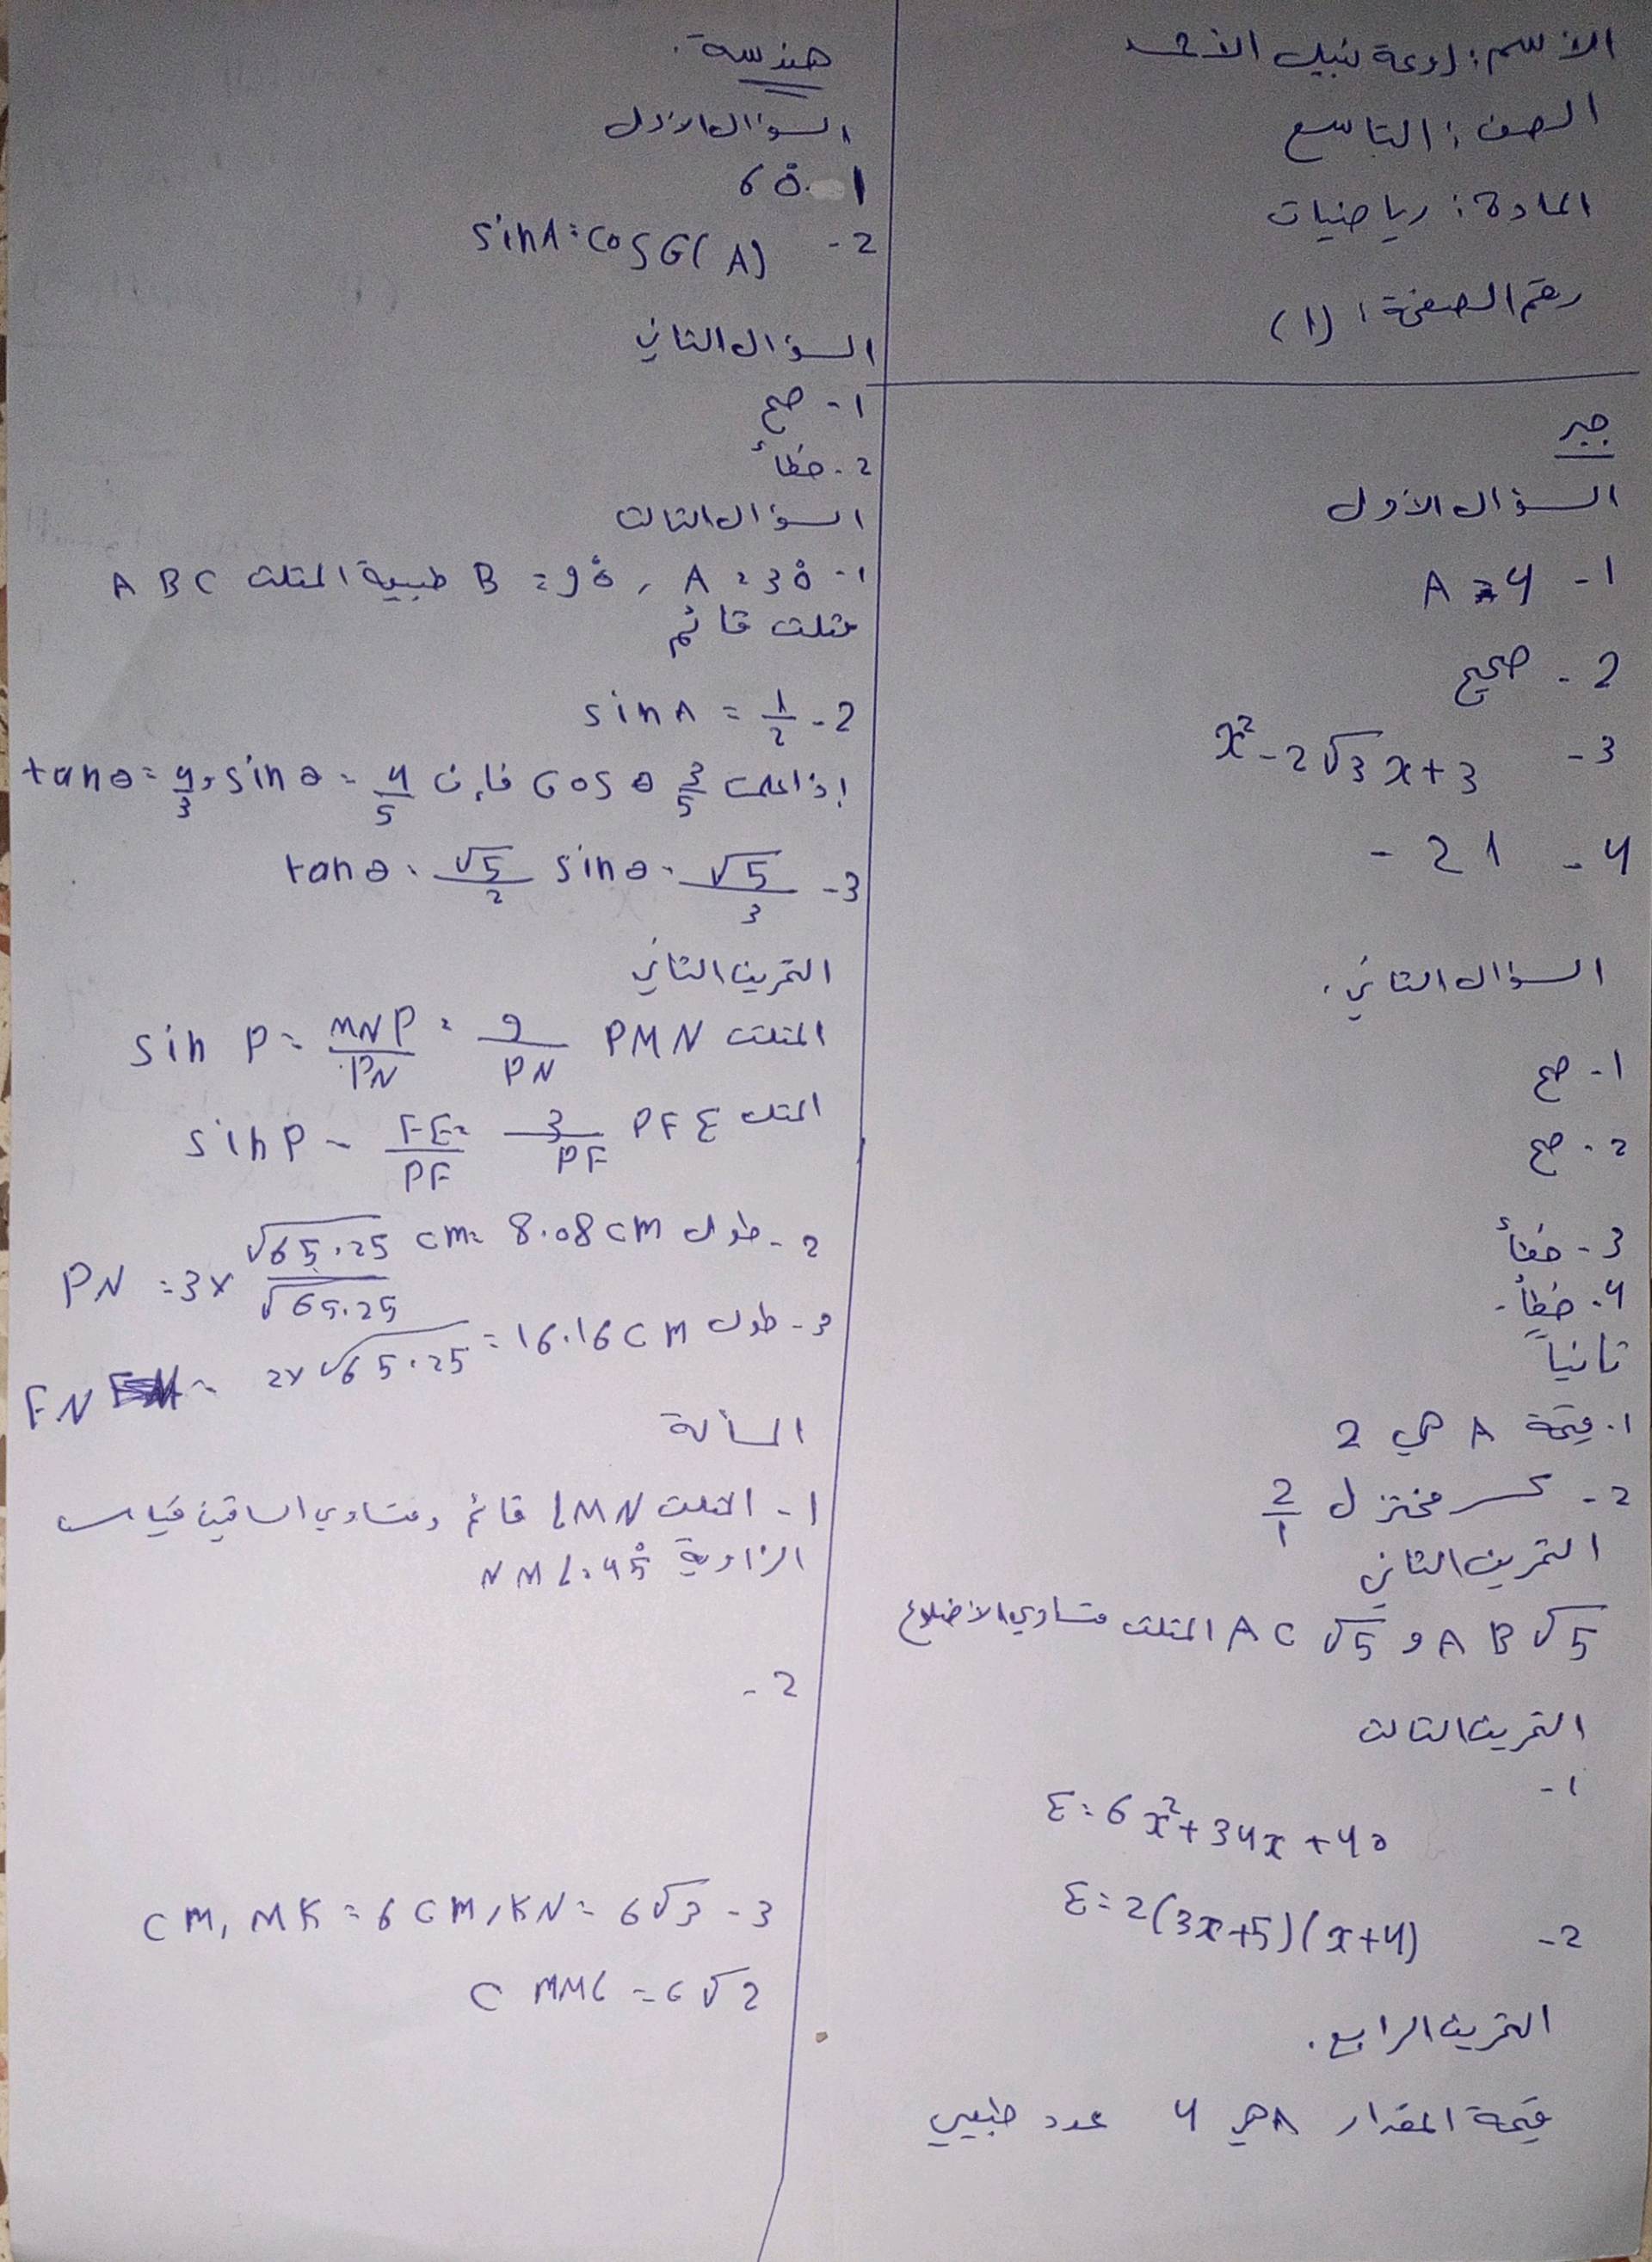 الاسم: لوعة نبيل الأحمد
الصف: التاسع
المادة: رياضيات
رقم الصفحة: (1)
جبر
السؤال الأول
1- A = 4
2- صحيح
3- x² - 2√3 x + 3
4- -21
السؤال الثاني.
1- صح
2- صح
3- خطأ
4- خطأ.
ثانياً
1. قيمة A هي 2
2- كسر مختزل 2/1
التمرين الثاني
AB √5 و AC √5 المثلث متساوي الأضلاع
التمرين الثالث
1-
E = 6x² + 34x + 40
2- E = 2(3x+5)(x+4)
التمرين الرابع.
قيمة المقدار A هي 4 عدد طبيعي
هندسة.
السؤال الأول
1 60°
2- sin A = cos G(A)
السؤال الثاني
1- صح
2- خطأ
السؤال الثالث
1- A = 30° , B = 90° طبيعة المثلث ABC
مثلث قائم
2- sin A = 1/2
إذا علمت cos θ 3/5 فإن sin θ = 4/5 و tan θ = 4/3
3- sin θ = √5/3 tan θ = √5/2
التمرين الثاني
المثلث PMN sin P = MNP/PN = 9/PN
المثلث PFE sin P = FE/PF = 3/PF
2- طول √65.25 cm = 8.08 cm
PN = 3× √65.25
3- طول 2×√65.25 = 16.16 cm
FN =
المسألة
1- المثلث LMN قائم ومتساوي الساقين قياس
الزاوية NML = 45°
2-
3- CM, MK = 6 CM, KN = 6√3
C MML = 6√2